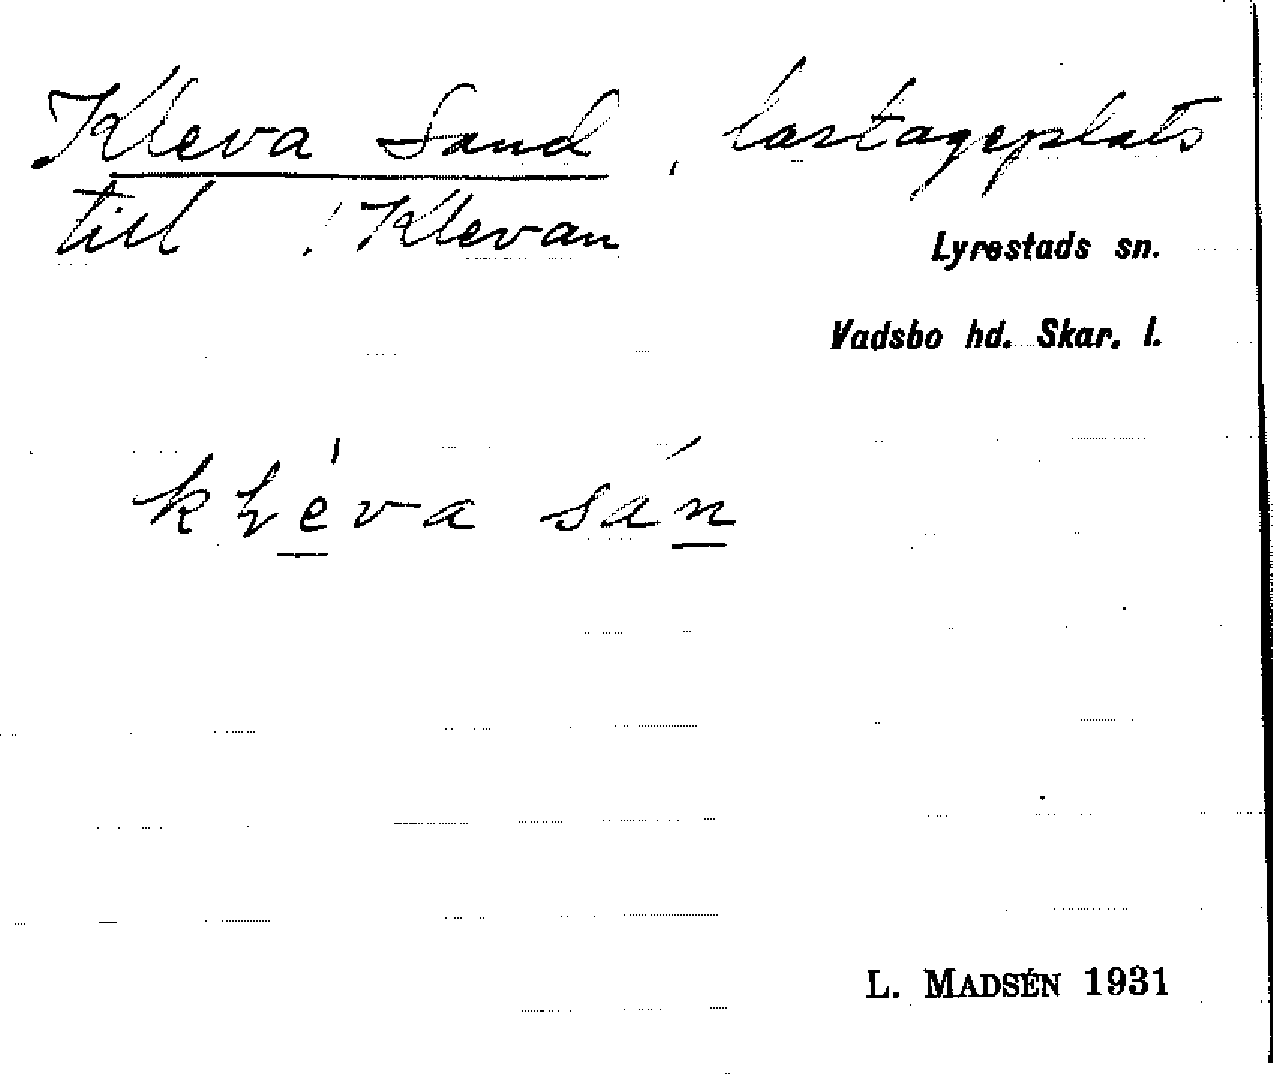 Kleva Sand, lastageplats
till ! Klevan
Lyrestads sn.
Vadsbo hd. Skar. l.
kḷéva sán
L. MADSÉN 1931